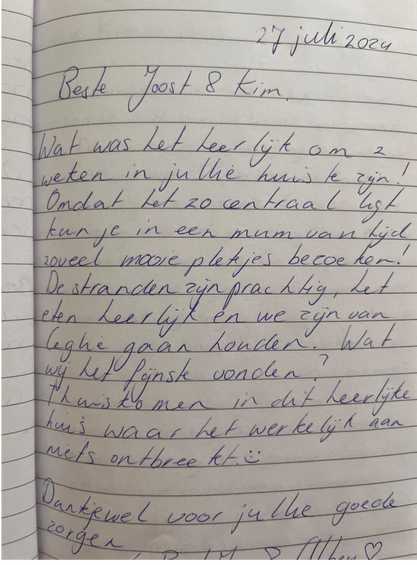 27 juli 2024
Beste Joost & Kim,
Wat was het heerlijk om 2
weken in jullie huis te zijn!
Omdat het zo centraal ligt
kun je in een mum van tijd
zoveel mooie plekjes bezoeken!
De stranden zijn prachtig, het
eten heerlijk en we zijn van
Ceglie gaan houden. Wat
wij het fijnste vonden?
Thuiskomen in dit heerlijke
huis waar het werkelijk aan
niets ontbreekt☺
Dankjewel voor jullie goede
zorgen